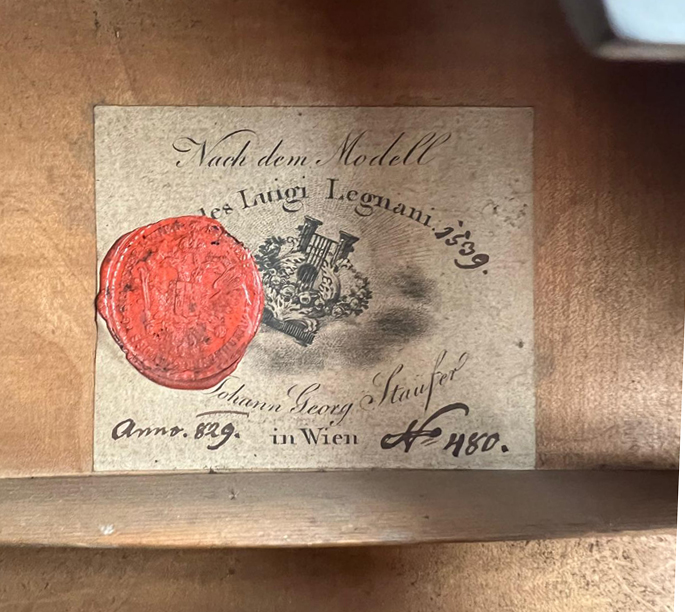 Nach dem Modell
des Luigi Legnani. 1539.
Johann Georg Staufer
Anno. 829. in Wien No 480.